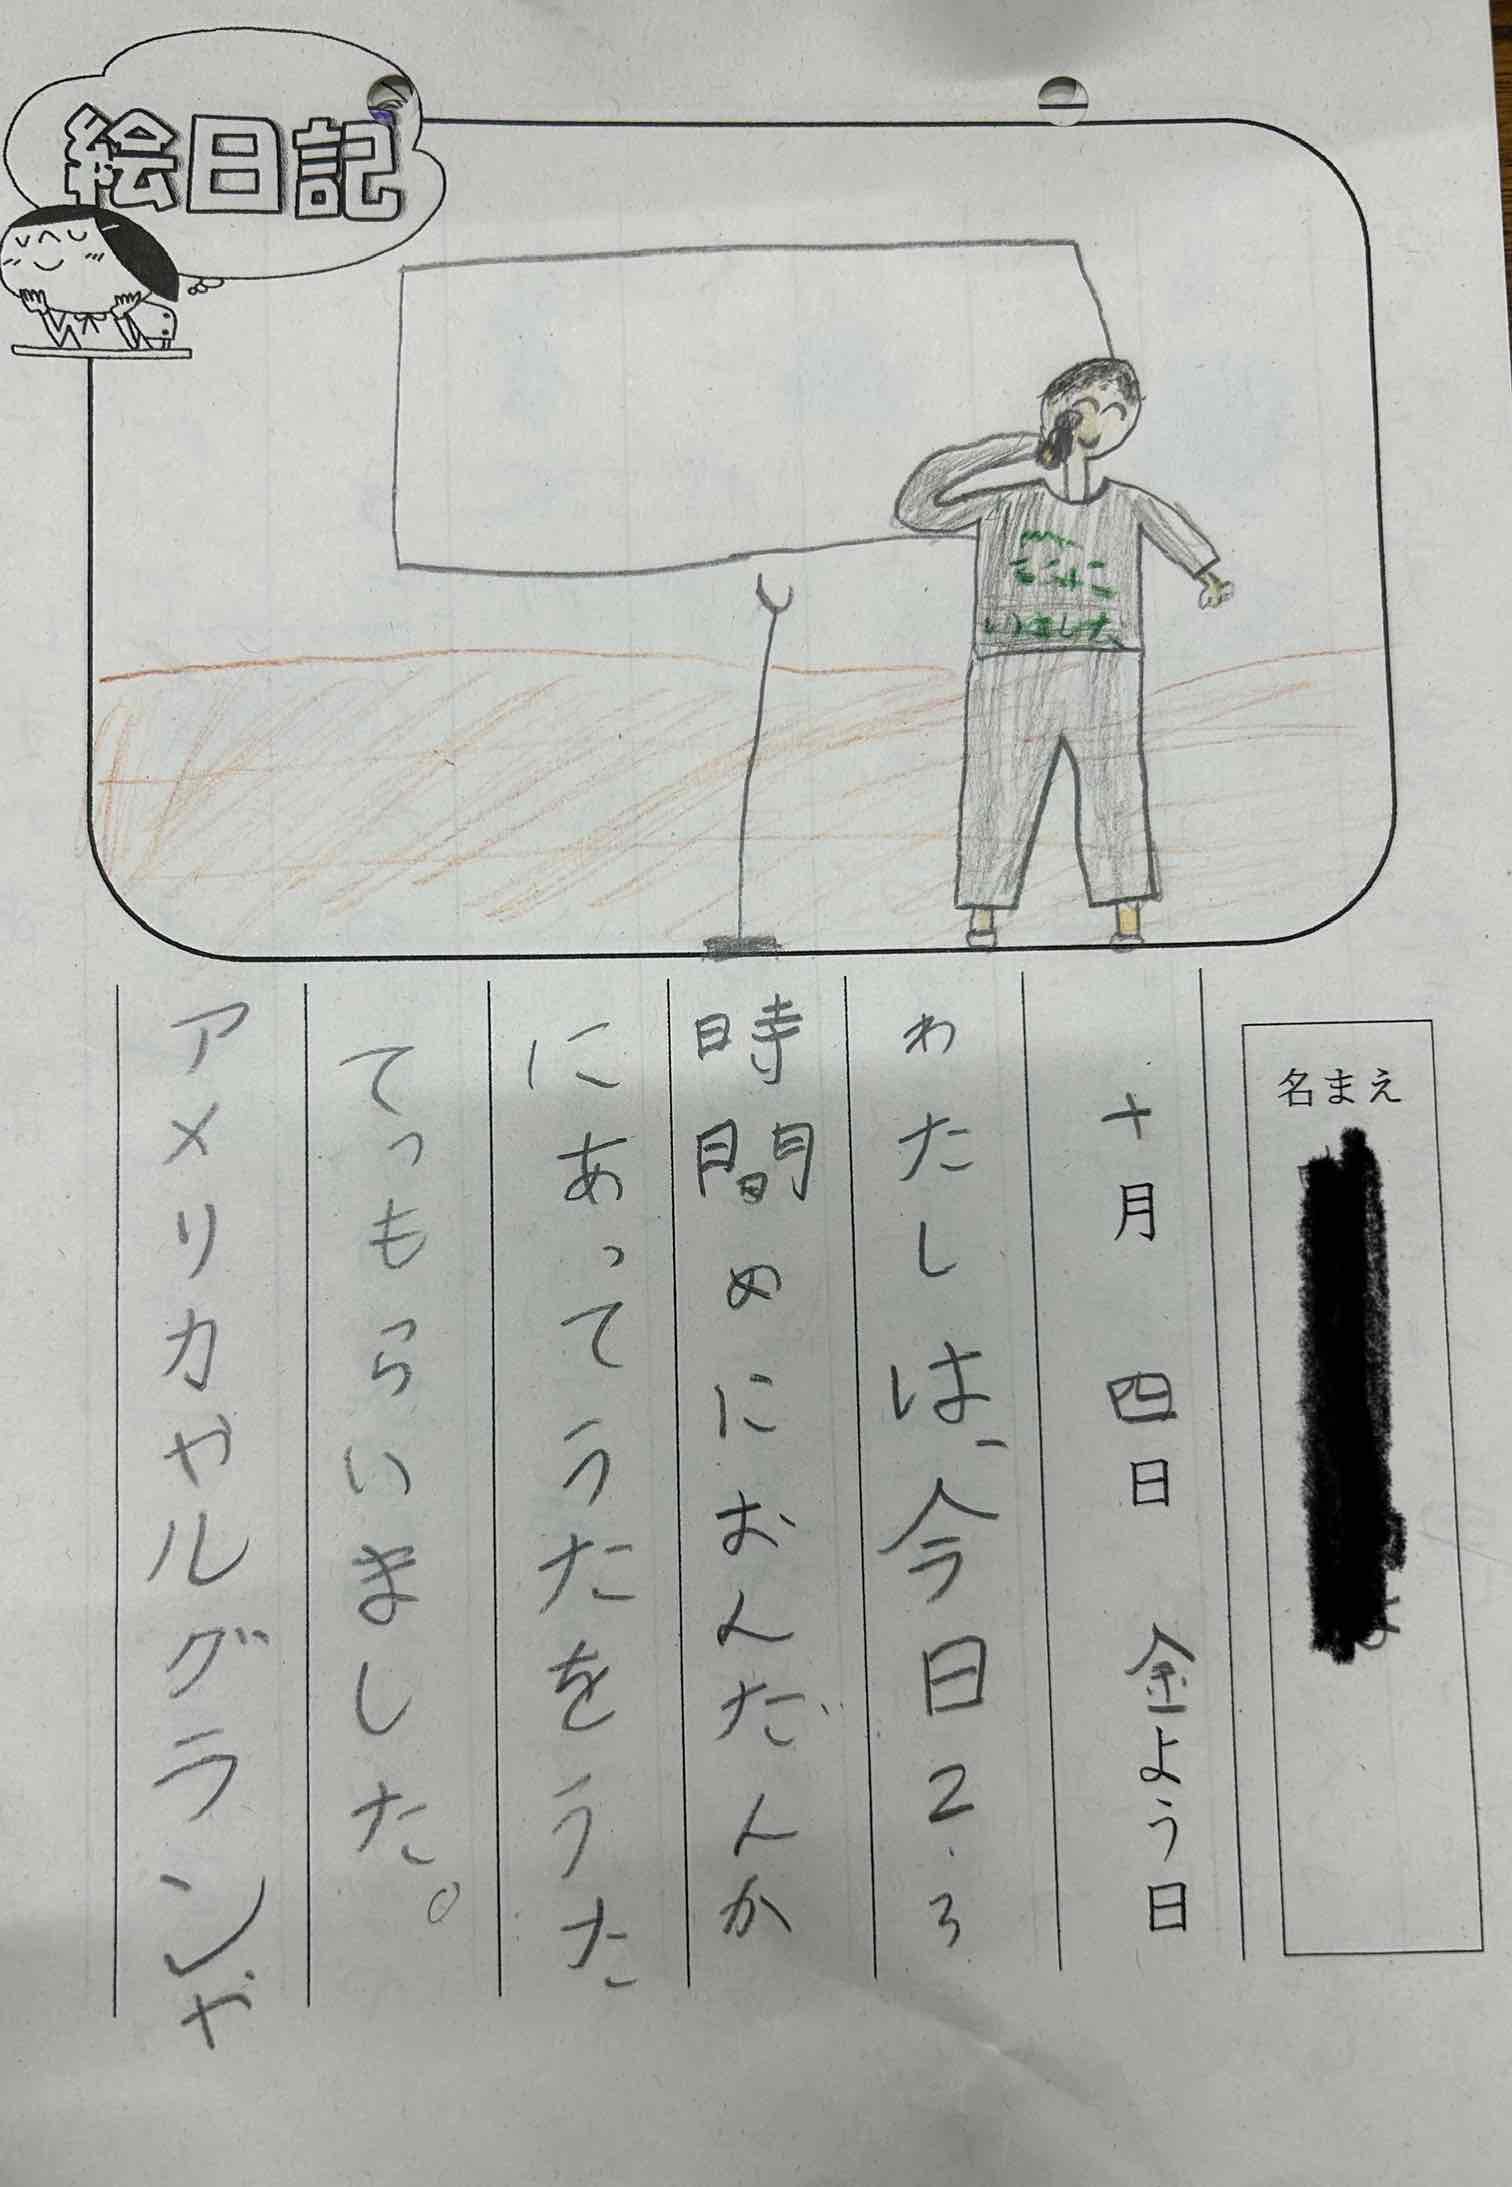 絵日記
名まえ
十月 四日 金よう日
わたしは、今日2.3
時間めにおんだんか
にあってうたをうた
てっもらいました。
アメリカやルグランや
いました